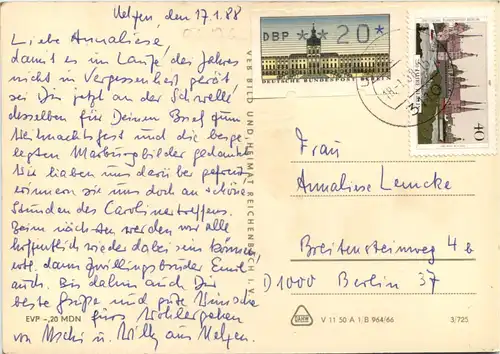 Uelzen, den 17.1.88
Liebe Annaliese,
damit es im Laufe des Jahres
nicht in Vergessenheit gerät
sei Dir jetzt an der Schwelle
desselben für Deinen Brief zum
Weihnachtsfest und die beige-
legten Marburgbilder gedankt.
Wir haben uns darüber gefreut,
erinnern sie uns doch an schöne
Stunden des Carolinertreffens.
Beim nächsten werden wir alle
hoffentlich wieder dabei sein können,
evtl. dann Zwillingsbruder Emil
auch. Bis dahin auch Dir
beste Grüße und gute Wünsche
fürs Wohlergehen
von Uschi u. Willy aus Uelzen.
EVP -,20 MDN
VEB BILD UND HEIMAT REICHENBACH I. V.
DBP ** 20*
DEUTSCHE BUNDESPOST BERLIN
DEUTSCHE BUNDESPOST BERLIN
40
Frau
Annaliese Lemcke
Breitensteinweg 4b
D1000 Berlin 37
V 11 50 A 1 B 964/66
3/725